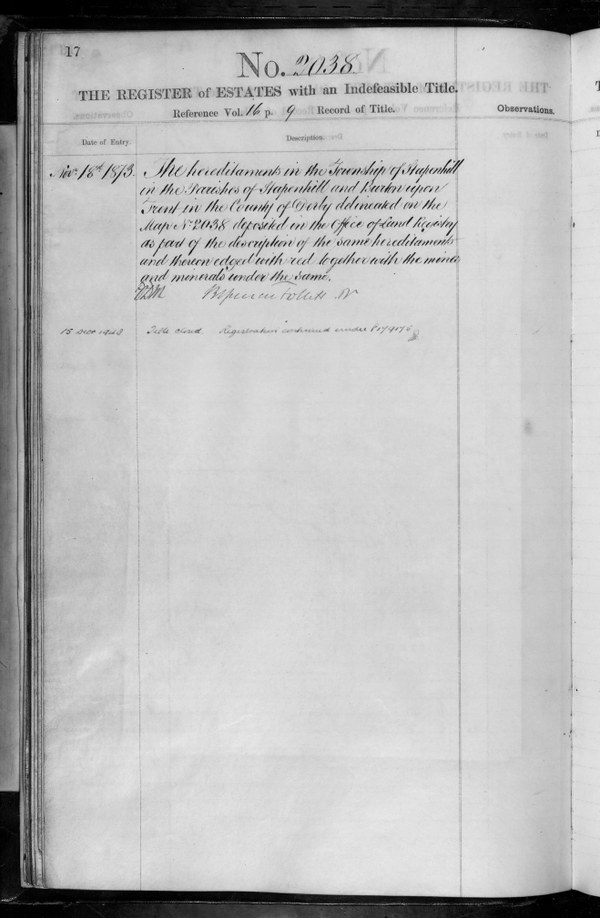 17
No. 2038
THE REGISTER of ESTATES with an Indefeasible Title.
Reference Vol. 16 p. 9 Record of Title.
Observations.
Date of Entry.
Description.
Novr. 18th 1873. The hereditaments in the Township of Stapenhill
in the Parishes of Stapenhill and Burton upon
Trent in the County of Derby delineated on the
Map No 2038 deposited in the Office of Land Registry
as part of the description of the same hereditaments
and thereon edged with red together with the mines
and minerals under the same.
Title closed. Registration continued under